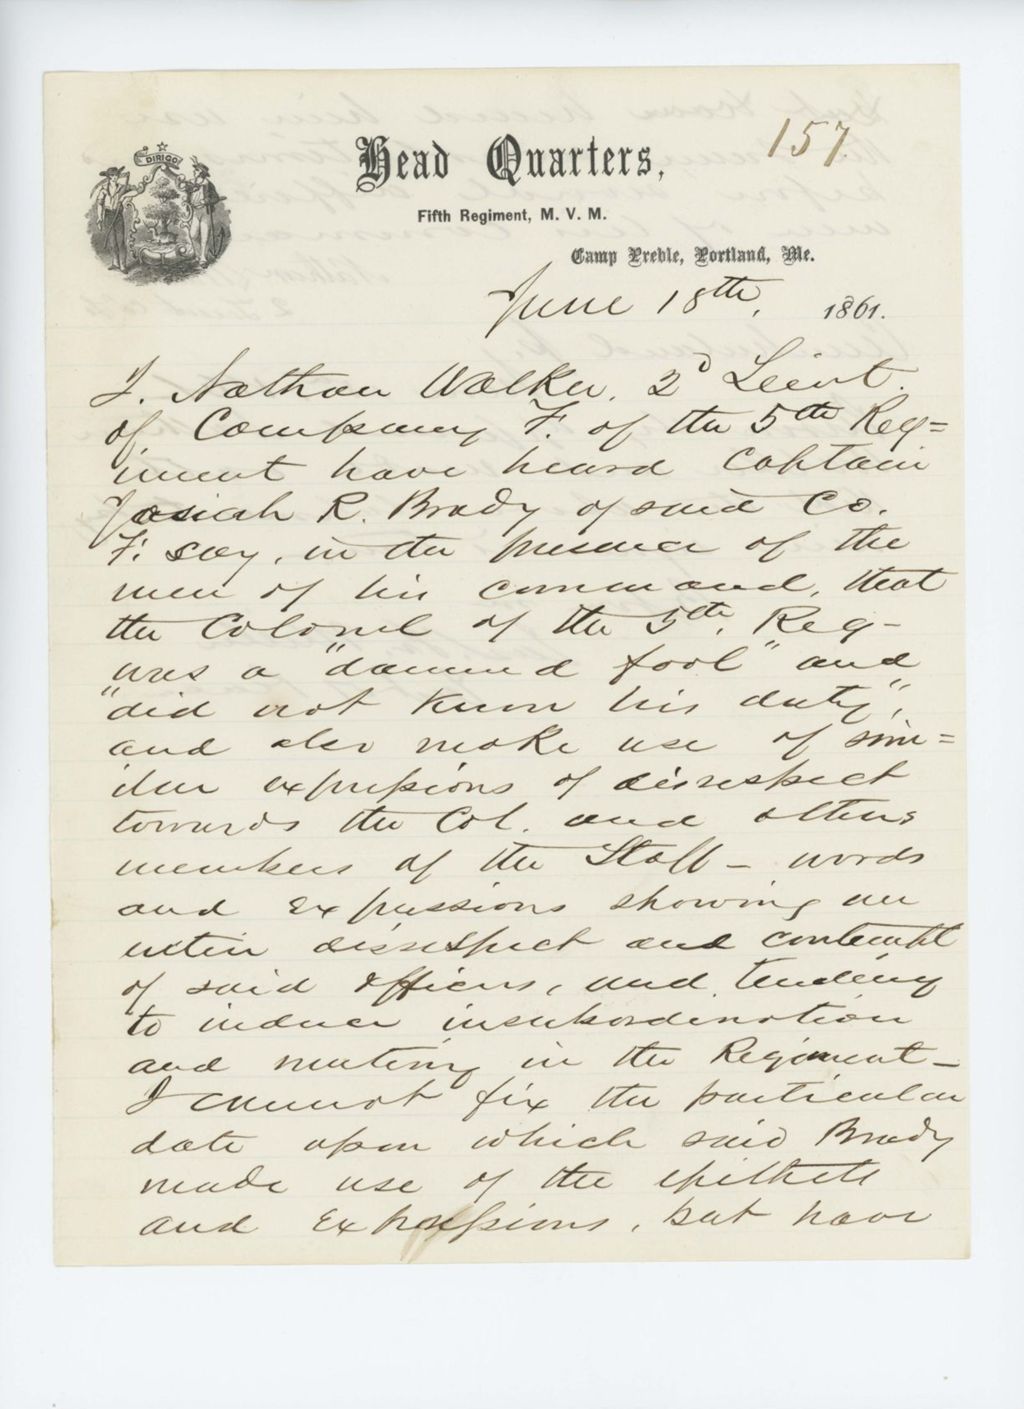 157.
DIRIGO
Head Quarters,
Fifth Regiment, M. V. M.
Camp Preble, Portland, Me.
June 18th, 1861.
I. Nathan Walker, 2d Lieut.
of Company F. of the 5th Reg=
iment have heard Captain
Josiah R. Brady of said Co.
F. say, in the presence of the
men of his command, that
the Colonel of the 5th. Reg-
was a "damned fool" and
"did not know his duty",
and also make use of sim=
ilar expressions of disrespect
towards the Col. and others
members of the Staff - words
and expressions showing an
utter disrespect and contempt
of said officers, and tending
to induce insubordination
and mutiny in the Regiment -
I cannot fix the particular
date upon which said Brady
made use of the epithets
and expressions, but have